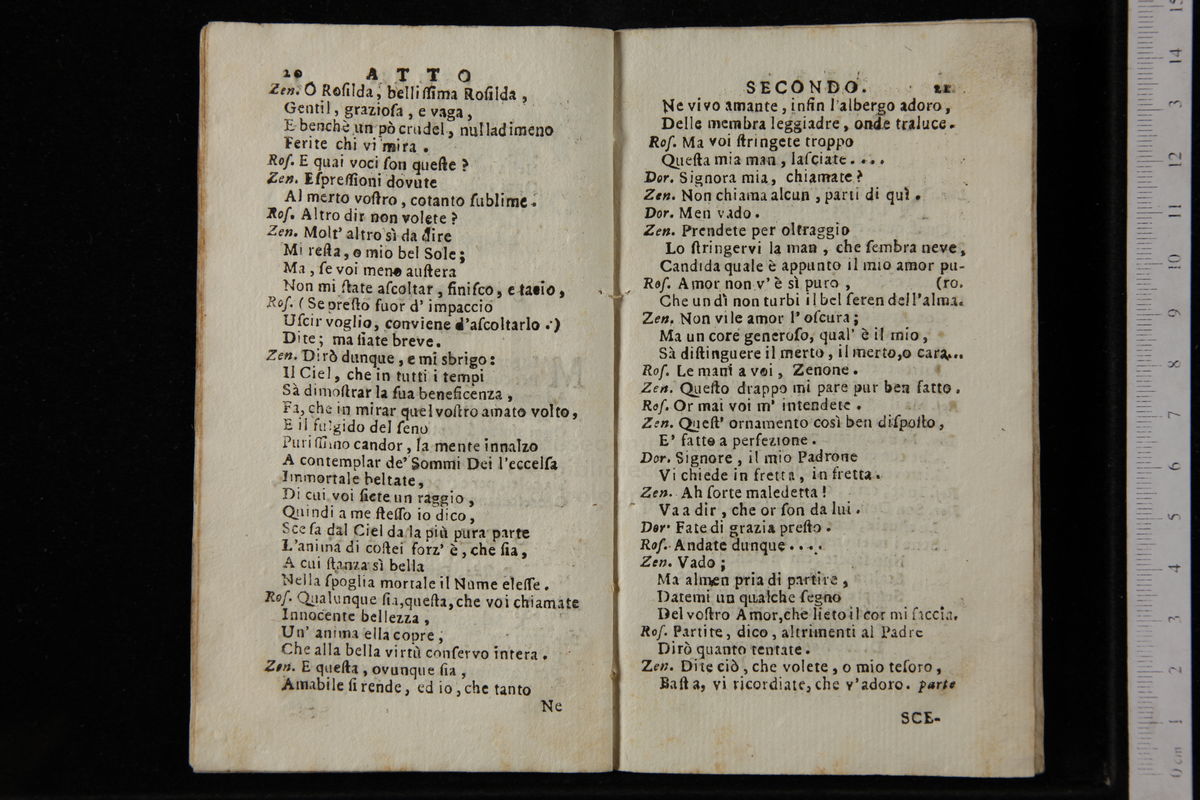 20 ATTO
Zen. O Roſilda, belliſſima Roſilda,
Gentil, grazioſa, e vaga,
E benchè un pò crudel, nulladimeno
Ferite chi vi mira.
Roſ. E quai voci ſon queſte?
Zen. Eſpreſſioni dovute
Al merto voſtro, cotanto ſublime.
Roſ. Altro dir non volete?
Zen. Molt' altro sì da dire
Mi reſta, o mio bel Sole;
Ma, ſe voi meno auſtera
Non mi ſtate aſcoltar, finiſco, e taccio,
Roſ. (Se preſto fuor d' impaccio
Uſcir voglio, conviene d'aſcoltarlo.)
Dite; ma ſiate breve.
Zen. Dirò dunque, e mi sbrigo:
Il Ciel, che in tutti i tempi
Sà dimoſtrar la ſua beneficenza,
Fa, che in mirar quel voſtro amato volto,
E il fulgido del ſeno
Puriſſimo candor, la mente innalzo
A contemplar de' Sommi Dei l'eccelſa
Immortale beltate,
Di cui voi ſiete un raggio,
Quindi a me ſteſſo io dico,
Sceſa dal Ciel dala più pura parte
L'anima di coſtei forz' è, che ſia,
A cui ſtanza sì bella
Nella ſpoglia mortale il Nume eleſſe.
Roſ. Qualunque ſia, queſta, che voi chiamate
Innocente bellezza,
Un' anima ella copre,
Che alla bella virtù conſervo intera.
Zen. E queſta, ovunque ſia,
Amabile ſi rende, ed io, che tanto
Ne
SECONDO. 21
Ne vivo amante, infin l'albergo adoro,
Delle membra leggiadre, onde traluce.
Roſ. Ma voi ſtringete troppo
Queſta mia man, laſciate....
Dor. Signora mia, chiamate?
Zen. Non chiama alcun, parti di quì.
Dor. Men vado.
Zen. Prendete per oltraggio
Lo ſtringervi la man, che ſembra neve,
Candida quale è appunto il mio amor pu-
Roſ. Amor non v' è sì puro, (ro.
Che un dì non turbi il bel ſeren dell'alma.
Zen. Non vile amor l' oſcura;
Ma un core generoſo, qual' è il mio,
Sà diſtinguere il merto, il merto, o cara...
Roſ. Le mani a voi, Zenone.
Zen. Queſto drappo mi pare pur ben fatto.
Roſ. Or mai voi m' intendete.
Zen. Queſt' ornamento così ben diſpoſto,
E' fatto a perfezione.
Dor. Signore, il mio Padrone
Vi chiede in fretta, in fretta.
Zen. Ah ſorte maledetta!
Va a dir, che or ſon da lui.
Dor. Fate di grazia preſto.
Roſ. Andate dunque....
Zen. Vado;
Ma almen pria di partire,
Datemi un qualche ſegno
Del voſtro Amor, che lieto il cor mi faccia.
Roſ. Partite, dico, altrimenti al Padre
Dirò quanto tentate.
Zen. Dite ciò, che volete, o mio teſoro,
Baſta, vi ricordiate, che v'adoro. parte
SCE-